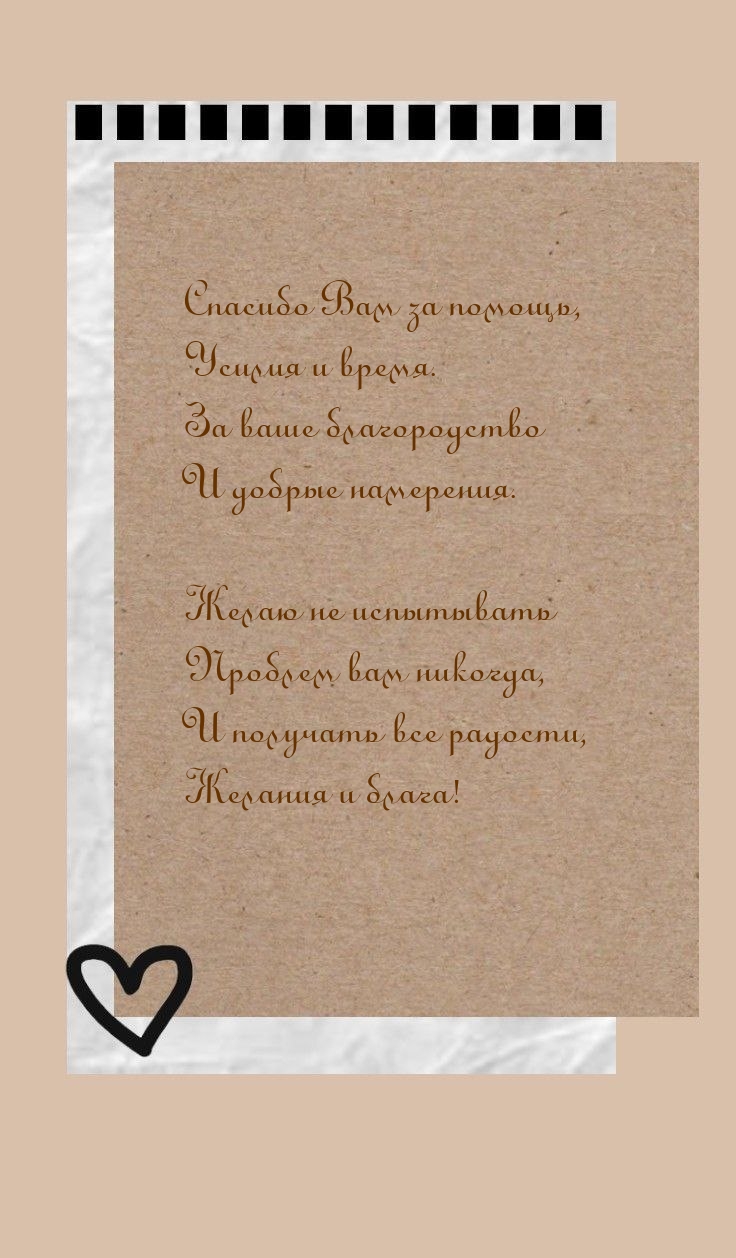 Спасибо Вам за помощь,
Усилия и время.
За ваше благородство
И добрые намерения.
Желаю не испытывать
Проблем вам никогда,
И получать все радости,
Желания и блага!